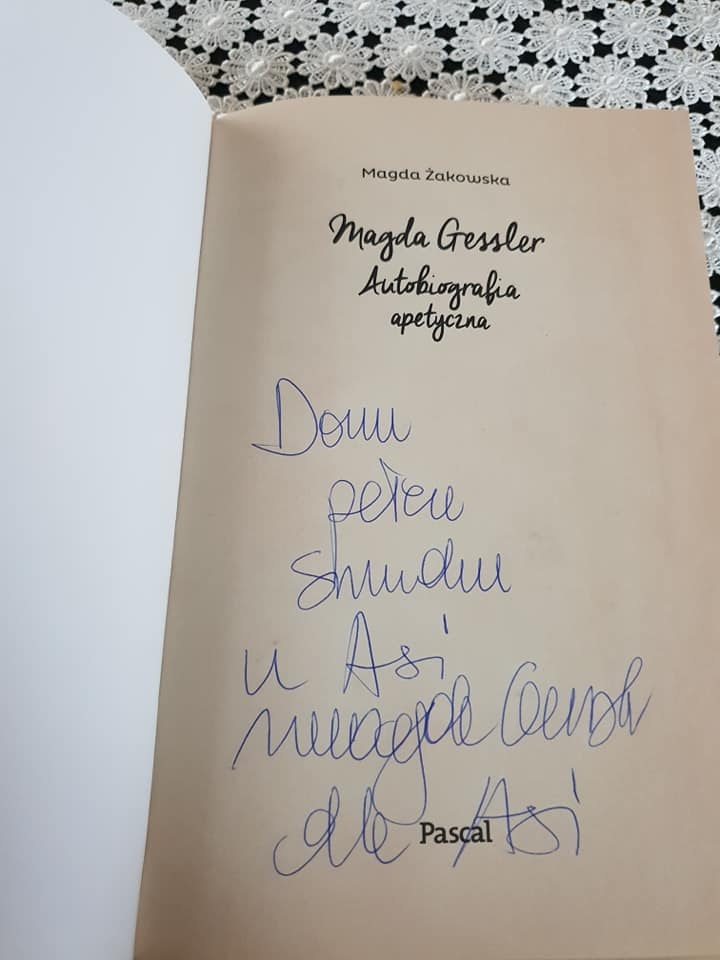 Magda Żakowska
Magda Gessler
Autobiografia
apetyczna
Domu
pełen
u Asi
Magda Gessler
dla Asi
Pascal